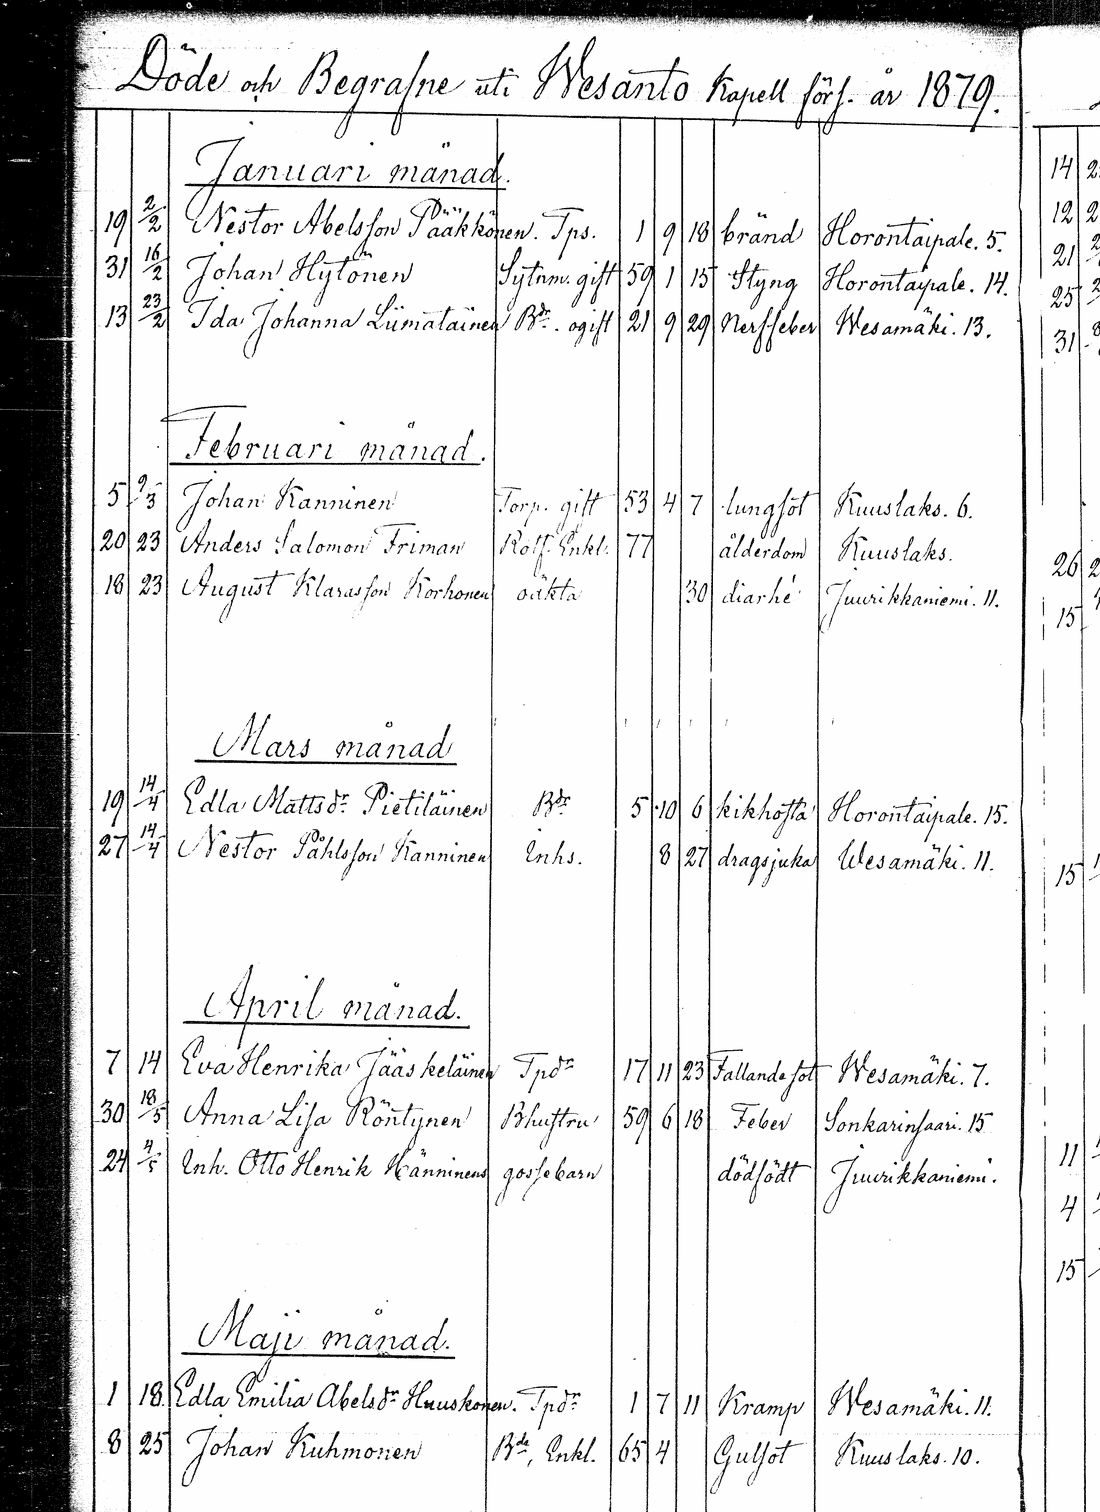 Döde och Begrafne uti Wesanto Kapell förs. år 1879.
Januari månad.
19 2/2 Nestor Abelsson Pääkkönen. Tps. 1 9 18 bränd Horontaipale. 5.
31 16/2 Johan Hytönen Sytnm. gift 59 1 15 Styng Horontaipale. 14.
13 23/2 Ida Johanna Liimatainen Bdr. ogift 21 9 29 Nerffeber Wesamäki. 13.
Februari månad.
5 9/3 Johan Kanninen Torp. gift 53 4 7 lungsot Kuuslaks. 6.
20 23 Anders Salomon Friman Rotf. Enkl. 77 ålderdom Kuuslaks.
18 23 August Klarasson Korhonen oäkta 30 diarhé Juurikkaniemi. 11.
Mars månad
19 14/4 Edla Mattsdr Pietiläinen Bdr 5 10 6 kikhosta Horontaipale. 15.
27 14/4 Nestor Påhlsson Kanninen Inhs. 8 27 dragsjuka Wesamäki. 11.
April månad.
7 14 Eva Henrika Jääskeläinen Tpdr 17 11 23 Fallandesot Wesamäki. 7.
30 18/5 Anna Lisa Röntynen Bhustru 59 6 18 Feber Sonkarinsaari. 15
24 4/5 Inh. Otto Henrik Hänninens gossebarn dödfödt Juurikkaniemi.
Maji månad.
1 18. Edla Emilia Abelsdr Huuskonen. Tpdr 1 7 11 Kramp Wesamäki. 11.
8 25 Johan Kuhmonen Bde, Enkl. 65 4 Gulsot Kuuslaks. 10.
14
12
21
25
31
26
15
15
11
4
15